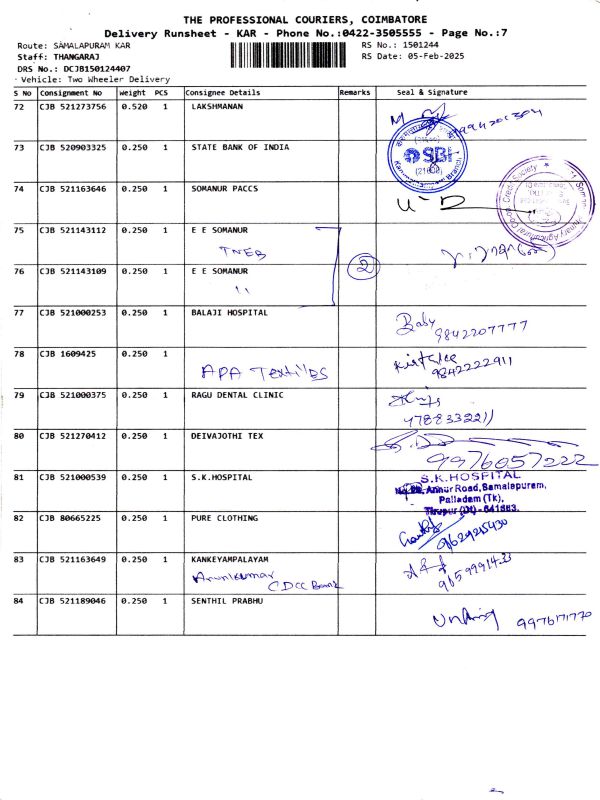 THE PROFESSIONAL COURIERS, COIMBATORE
Delivery Runsheet - KAR - Phone No.:0422-3505555 - Page No.:7
Route: SAMALAPURAM KAR
RS No.: 1501244
Staff: THANGARAJ
RS Date: 05-Feb-2025
DRS No.: DCJB150124407
Vehicle: Two Wheeler Delivery
S No Consignment No Weight PCS Consignee Details Remarks Seal & Signature
72 CJB 521273756 0.520 1 LAKSHMANAN
73 CJB 520903325 0.250 1 STATE BANK OF INDIA
SBI
74 CJB 521163646 0.250 1 SOMANUR PACCS
75 CJB 521143112 0.250 1 E E SOMANUR
TNEB
2
76 CJB 521143109 0.250 1 E E SOMANUR
77 CJB 521000253 0.250 1 BALAJI HOSPITAL
Baby
9842207777
78 CJB 1609425 0.250 1
APA Textiles
9842222911
79 CJB 521000375 0.250 1 RAGU DENTAL CLINIC
80 CJB 521270412 0.250 1 DEIVAJOTHI TEX
9976057222
81 CJB 521000539 0.250 1 S.K.HOSPITAL
S.K.HOSPITAL
Annur Road, Samalapuram,
Palladam (Tk),
Tirupur (Dt) - 641663.
82 CJB 80665225 0.250 1 PURE CLOTHING
9629215430
83 CJB 521163649 0.250 1 KANKEYAMPALAYAM
Arunkumar
CDCC Bank
84 CJB 521189046 0.250 1 SENTHIL PRABHU